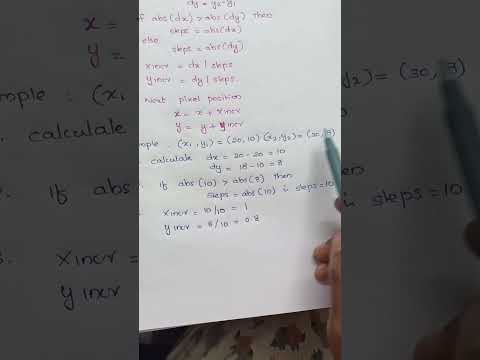 dy = y₂-y₁
if abs(dx) > abs(dy) then
steps = abs(dx)
else
steps = abs(dy)
xincr = dx / steps
yincr = dy / steps.
Next pixel position
x = x + xincr
y = y + yincr
mple : (x₁, y₁) = (20, 10) (x₂, y₂) = (30,
calculate dx = 20-20 = 10
dy = 18-10 = 8
If abs(10) > abs(8) then
steps = abs(10) i steps=10
xincr = 10/10 = 1
yincr = 8/10 = 0.8
x =
y =
mple : (x₁
y₂) = (30,
i steps = 10
3. xincr
yincr